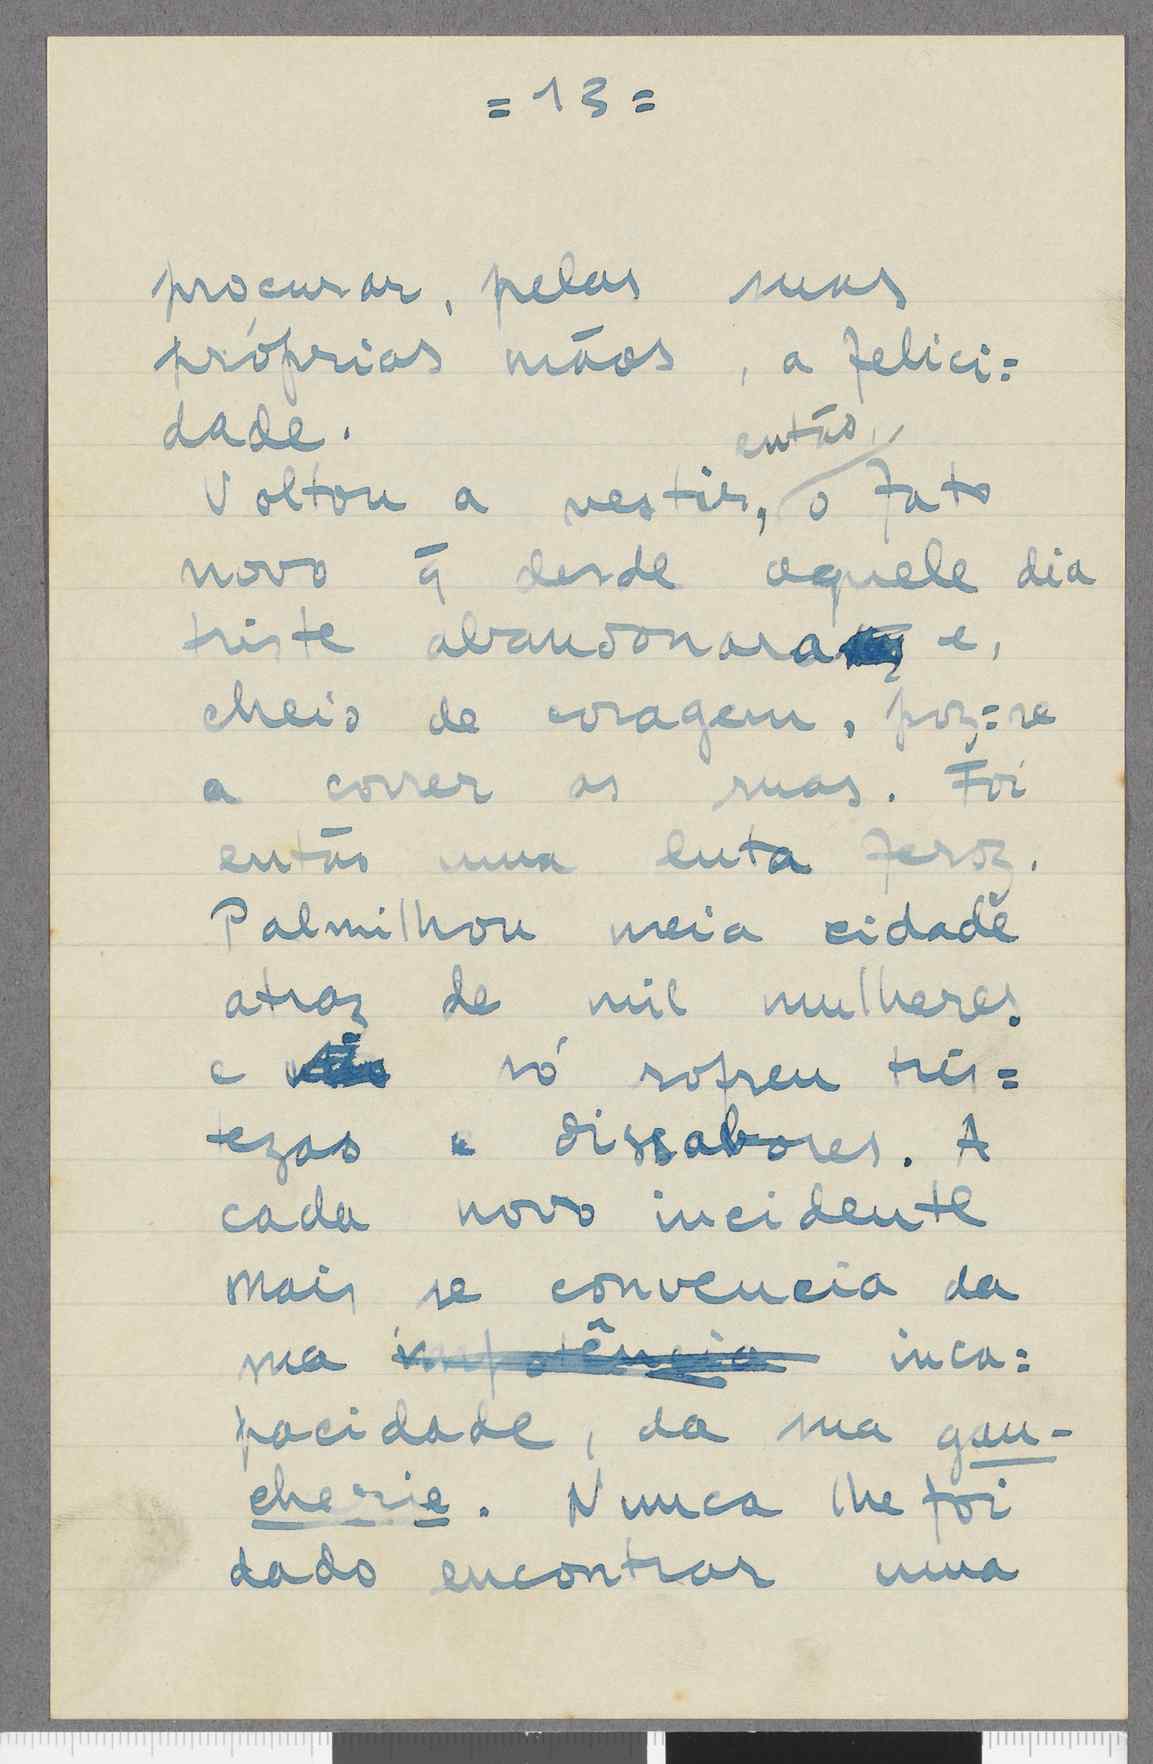 = 13 =
procurar, pelas suas
próprias mãos, a felici=
dade.
então,
Voltou a vestir, o fato
novo q̄ desde aquele dia
triste abandonara e,
cheio de coragem, poz=se
a correr as ruas. Foi
então uma luta feroz.
Palmilhou meia cidade
atraz de mil mulheres
e só sofreu tris=
tezas e dissabores. A
cada novo incidente
mais se convencia da
sua impotência inca=
pacidade, da sua gau-
cherie. Nunca lhe foi
dado encontrar uma